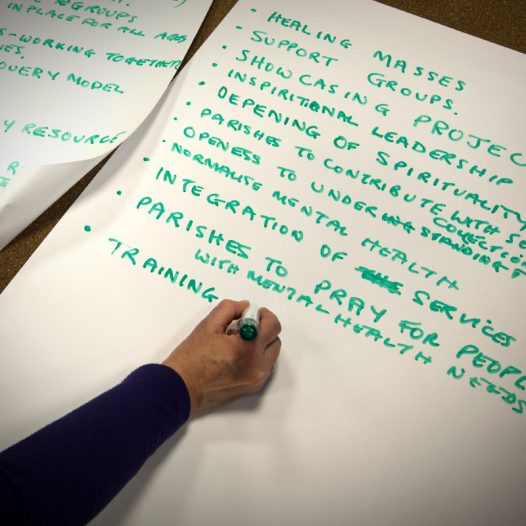 GROUPS
IN PLACE FOR ALL AGES
-WORKING TOGETHER
MODEL
RESOURCE
• HEALING MASSES
• SUPPORT GROUPS.
• SHOWCASING PROJEC
• INSPIRITIONAL LEADERSHIP
• DEPENING OF SPIRITUALITY
• PARISHES TO CONTRIBUTE WITH
COLLECTION
• OPENNESS TO UNDERSTANDING
• NORMALISE MENTAL HEALTH
• INTEGRATION OF SERVICES
• PARISHES TO PRAY FOR PEOPLE
WITH MENTAL HEALTH NEEDS
• TRAINING